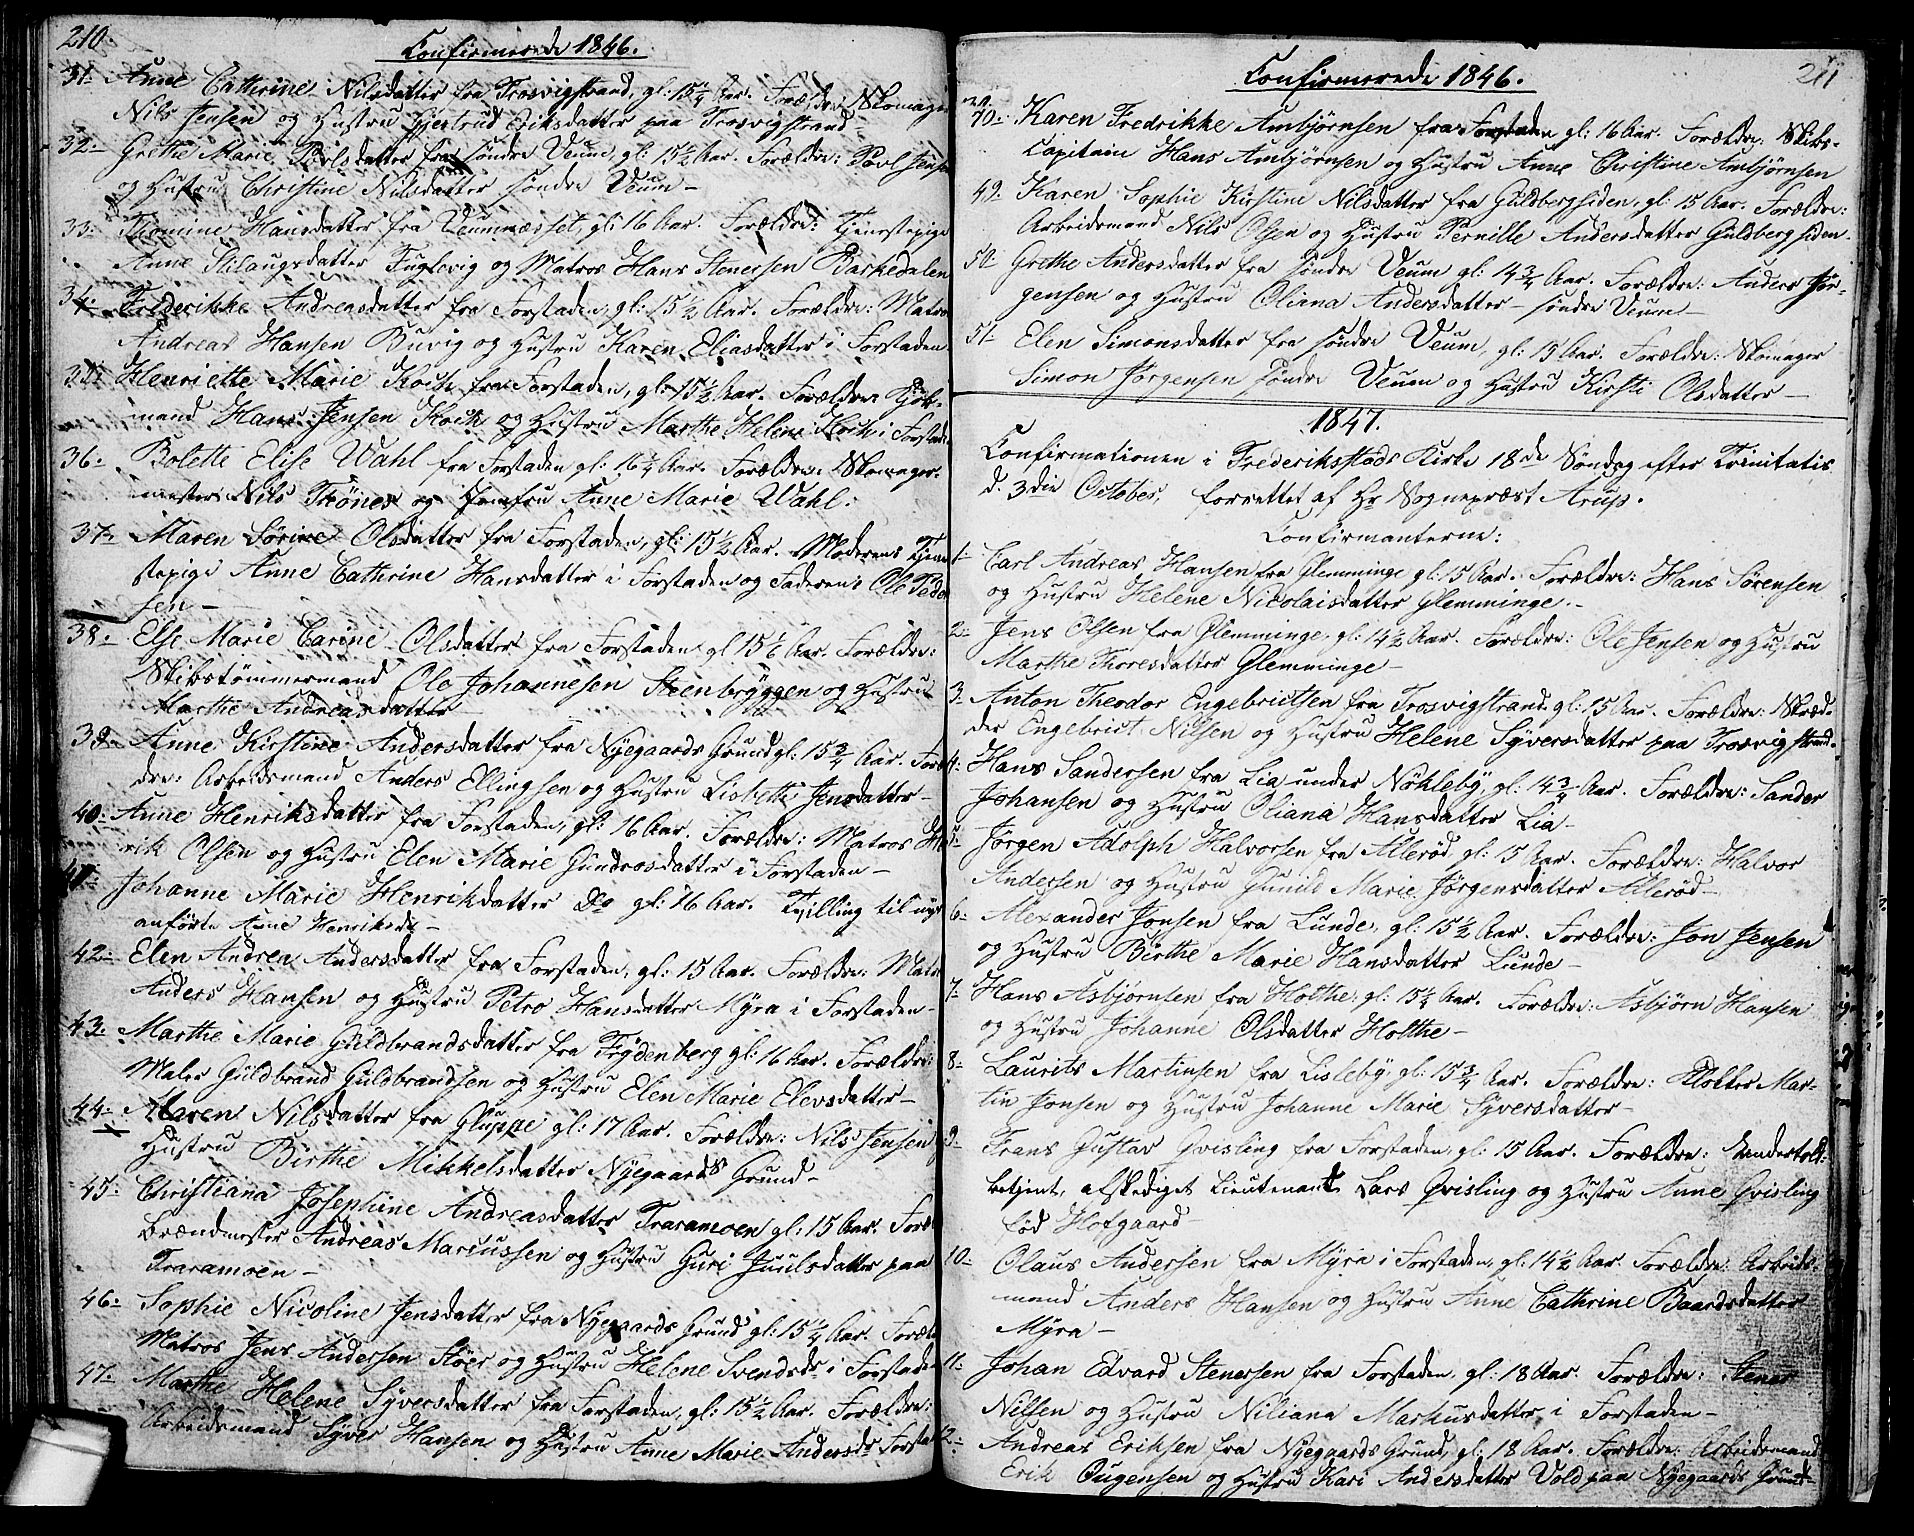 210.
Confirmerede 1846.
31. Anne Cathrine Nilsdatter fra Trosvigstrand, gl: 15 1/4 Aar. Forældre: Skomager
Nils Jensen og Hustru Gjertrud Eriksdatter paa Trosvigstrand
32. Grethe Marie Povlsdatter fra søndre Veum, gl: 15 1/2 Aar. Forældre: Povl Jensen
og Hustru Christine Nilsdatter søndre Veum –
33. Thomine Hansdatter fra Veumnæsset, gl: 16 Aar. Forældre: Tjenestepige
Anne Stilaugsdatter Fuglevig og Matros Hans Stenersen Barkedalen
34. Frederikke Andreasdatter fra Forstaden, gl: 15 1/2 Aar. Forældre: Matros
Andreas Hansen Buvig og Hustru Karen Eliasdatter i Forstaden
35. Henriette Marie Koch fra Forstaden, gl: 15 1/2 Aar. Forældre: Kjøb-
mand Hans Jensen Koch og Hustru Marthe Helene Koch i Forstaden
36. Bolette Elise Wahl fra Forstaden gl: 16 1/4 Aar. Forældre: Skomager-
mester Nils Trönes og Jomfru Anne Marie Wahl:
37. Maren Sörine Olsdatter fra Forstaden, gl: 15 1/2 Aar. Moderen: Tjene-
stepige Anne Cathrine Hansdatter i Forstaden og Faderen: Ole Peder
sen –
38. Else Marie Carine Olsdatter fra Forstaden gl 15 1/6 Aar. Forældre:
Skibstømmermand Ole Johannesen Steenbryggen og Hustru
Marthe Andreasdatter
39. Anne Kirstine Andersdatter fra Nyegaards Grund gl: 15 3/4 Aar. Foræl
dre: Arbeidsmand Anders Ellingsen og Hustru Lisbeth Jensdatter –
40. Anne Henriksdatter fra Forstaden, gl: 16 Aar. Forældre: Matros Hen
rik Olsen og Hustru Elen Marie Gundrosdatter i Forstaden –
41. Johanne Marie Henrikdatter Do gl: 16 Aar. Tvilling til nys
anførte Anne Henriksdr –
42. Elen Andrea Andersdatter fra Forstaden, gl: 15 Aar. Forældre: Matros
Anders Hansen og Hustru Petro Hansdatter Myra i Forstaden –
43. Marthe Marie Guldbrandsdatter fra Frydenberg gl: 16 Aar. Forældre:
Maler Guldbrand Guldbrandsen og Hustru Elen Marie Elevsdatter –
44. Maren Nilsdatter fra Gluppe gl: 17 Aar. Forældre: Nils Jensen
Hustru Birthe Mikkelsdatter Nyegaards Grund –
45. Christiana Josephine Andreasdatter Traramoen gl: 15 Aar. Foræl
Brændmester Andreas Marcussen og Hustru Guri Juulsdatter paa
Traramoen –
46. Sophie Nicoline Jensdatter fra Nyegaards Grund gl: 15 1/4 Aar. Forældre
Matros Jens Andersen Höer og Hustru Helene Svendsdr i Forstaden
47. Marthe Helene Syversdatter fra Forstaden, gl: 15 1/2 Aar. Forældre:
Arbeidsmand Syver Hansen og Hustru Anne Marie Andersdr Forstad
211
Confirmerede 1846.
70. Karen Fredrikke Ambjørnsen fra Forstaden gl: 16 Aar. Forældre: Skibs-
Capitain Hans Ambjørnsen og Hustru Anne Christine Ambjørnsen
49. Karen Sophie Kirstine Nilsdatter fra Guldbergsiden, gl: 15 Aar. Forældre:
Arbeidsmand Nils Olsen og Hustru Pernille Andersdatter Guldbergsiden –
50. Grethe Andersdatter fra søndre Veum gl: 14 3/4 Aar. Forældre: Anders Jør-
gensen og Hustru Oliana Andersdatter – søndre Veum –
51. Elen Simonsdatter fra søndre Veum, gl: 15 Aar. Forældre: Skomager
Simon Jørgensen søndre Veum og Hustru Kirsti Olsdatter –
1847.
Confirmationen i Frederiksstads Kirke 18de Søndag efter Trinitatis
d. 3die October, forrettet af Hr Sognepræst Arup.
Confirmanterne:
1. Carl Andreas Hansen fra Glemminge gl: 15 Aar. Forældre: Hans Sørensen
og Hustru Helene Nicolaisdatter Glemminge. –
2. Jens Olsen fra Glemminge, gl: 14 1/2 Aar. Forældre: Ole Jensen og Hustru
Marthe Thoresdatter Glemminge –
3. Anton Theodor Engebrictsen fra Trosvigstrand gl: 15 Aar. Forældre: Skræd-
der Engebrict Nilsen og Hustru Helene Syversdatter paa Trosvigstrand.
4. Hans Sandersen fra Lia under Nökleby, gl: 14 3/4 Aar. Forældre: Sander
Johansen og Hustru Oliana Hansdatter Lia –
5. Jörgen Adolph Halvorsen fra Allerød gl: 15 Aar. Forældre: Halvor
Andersen og Hustru Gunild Marie Jörgensdatter Allerød –
6. Alexander Jonsen fra Lunde, gl: 15 1/2 Aar. Forældre: Jon Jensen
og Hustru Birthe Marie Hansdatter Lunde –
7. Hans Asbjørnsen fra Holthe, gl: 15 1/4 Aar. Forældre: Asbjørn Hansen
og Hustru Johanne Olsdatter Holthe –
8. Laurits Martinsen fra Lisleby, gl: 15 3/4 Aar. Forældre: Klokker Mar-
tin Jonsen og Hustru Johanne Marie Syversdatter –
9. Frans Gustav Qvisling fra Forstaden, gl: 15 Aar. Forældre: Undertold-
betjent, afskediget Lieutenant Lars Qvisling og Hustru Anne Qvisling
född Hofgaard –
10. Olaus Andersen fra Myra i Forstaden, gl: 14 1/2 Aar. Forældre: Arbeids-
mand Anders Hansen og Hustru Anne Cathrine Baardsdatter
Myra –
11. Johan Edvard Stenersen fra Forstaden, gl: 18 Aar. Forældre: Stener
Nilsen og Hustru Niliana Markusdatter i Forstaden –
12. Andreas Eriksen fra Nyegaards Grund, gl: 18 Aar. Forældre: Arbeidsmand
Erik Ougensen og Hustru Kari Andersdatter Vold paa Nyegaards Grund –